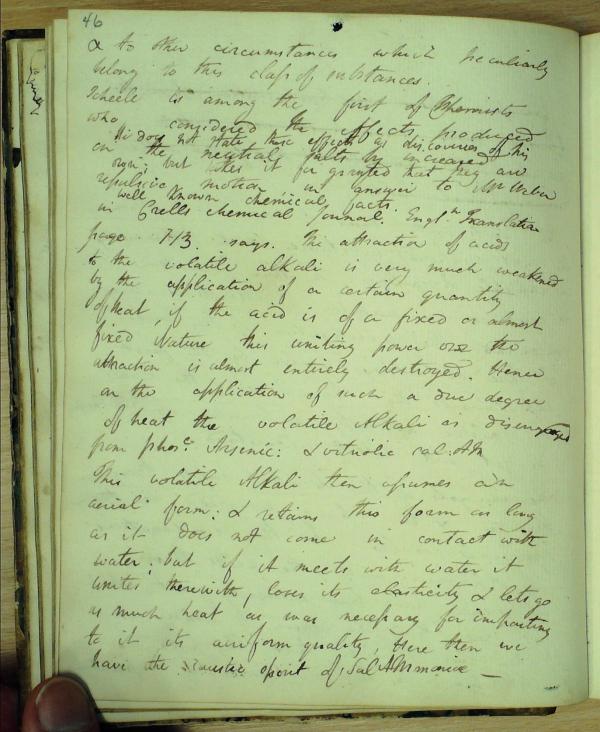 46
& to other circumstances which peculiarly
belong to this class of substances.
Scheele is among the first of Chemists
who considered the effects produced
He does not state these effects as discoveries of his
on the neutral salts by increased
own; but takes it for granted that they are
repulsive motion in answer to Mr Weber
well known chemical facts.
in Crells chemical Journal. Englsh Translation
page 7-13 says. The attraction of acids
to the volatile alkali is very much weakened
by the application of a certain quantity
of heat, if the acid is of a fixed or almost
fixed Nature this uniting power or the
attraction is almost entirely destroyed. Hence
on the application of such a due degree
of heat the volatile Alkali is disengaged
from phosc Arsenic: & vitriolic sal: Am
This volatile Alkali then assumes an
aerial form: & retains this form as long
as it does not come in contact with
water; but if it meets with water it
unites therewith, loses its elasticity & lets go
as much heat as was necessary for imparting
to it its aeriform quality, Here then we
have the caustic spirit of Sal Ammoniac —